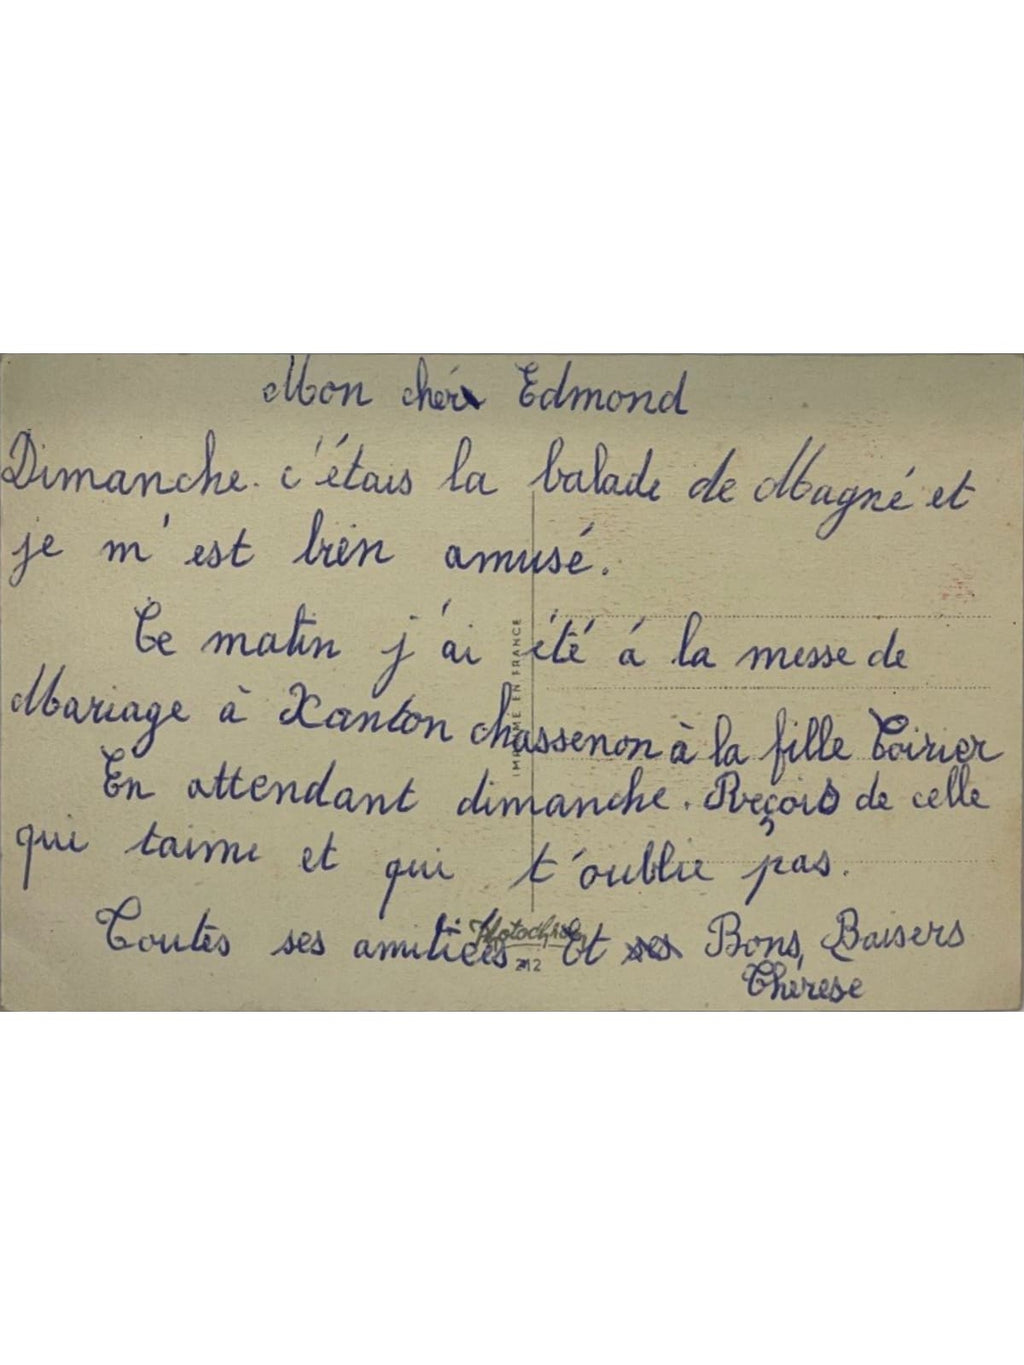 Mon chér Edmond
Dimanche. c'étais la balade de Magné et
je m'est bien amusé.
Ce matin j'ai été á la messe de
Mariage à Xanton chassenon à la fille Coirier
En attendant dimanche. Reçois de celle
qui taime et qui t'oublie pas.
Toutes ses amitiées Et ses Bons, Baisers
Thérèse
IMPRIMÉ EN FRANCE
212